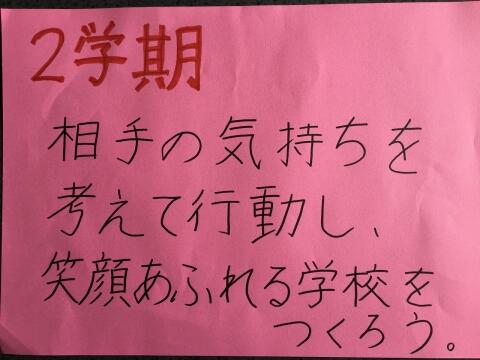 2学期
相手の気持ちを
考えて行動し、
笑顔あふれる学校を
つくろう。